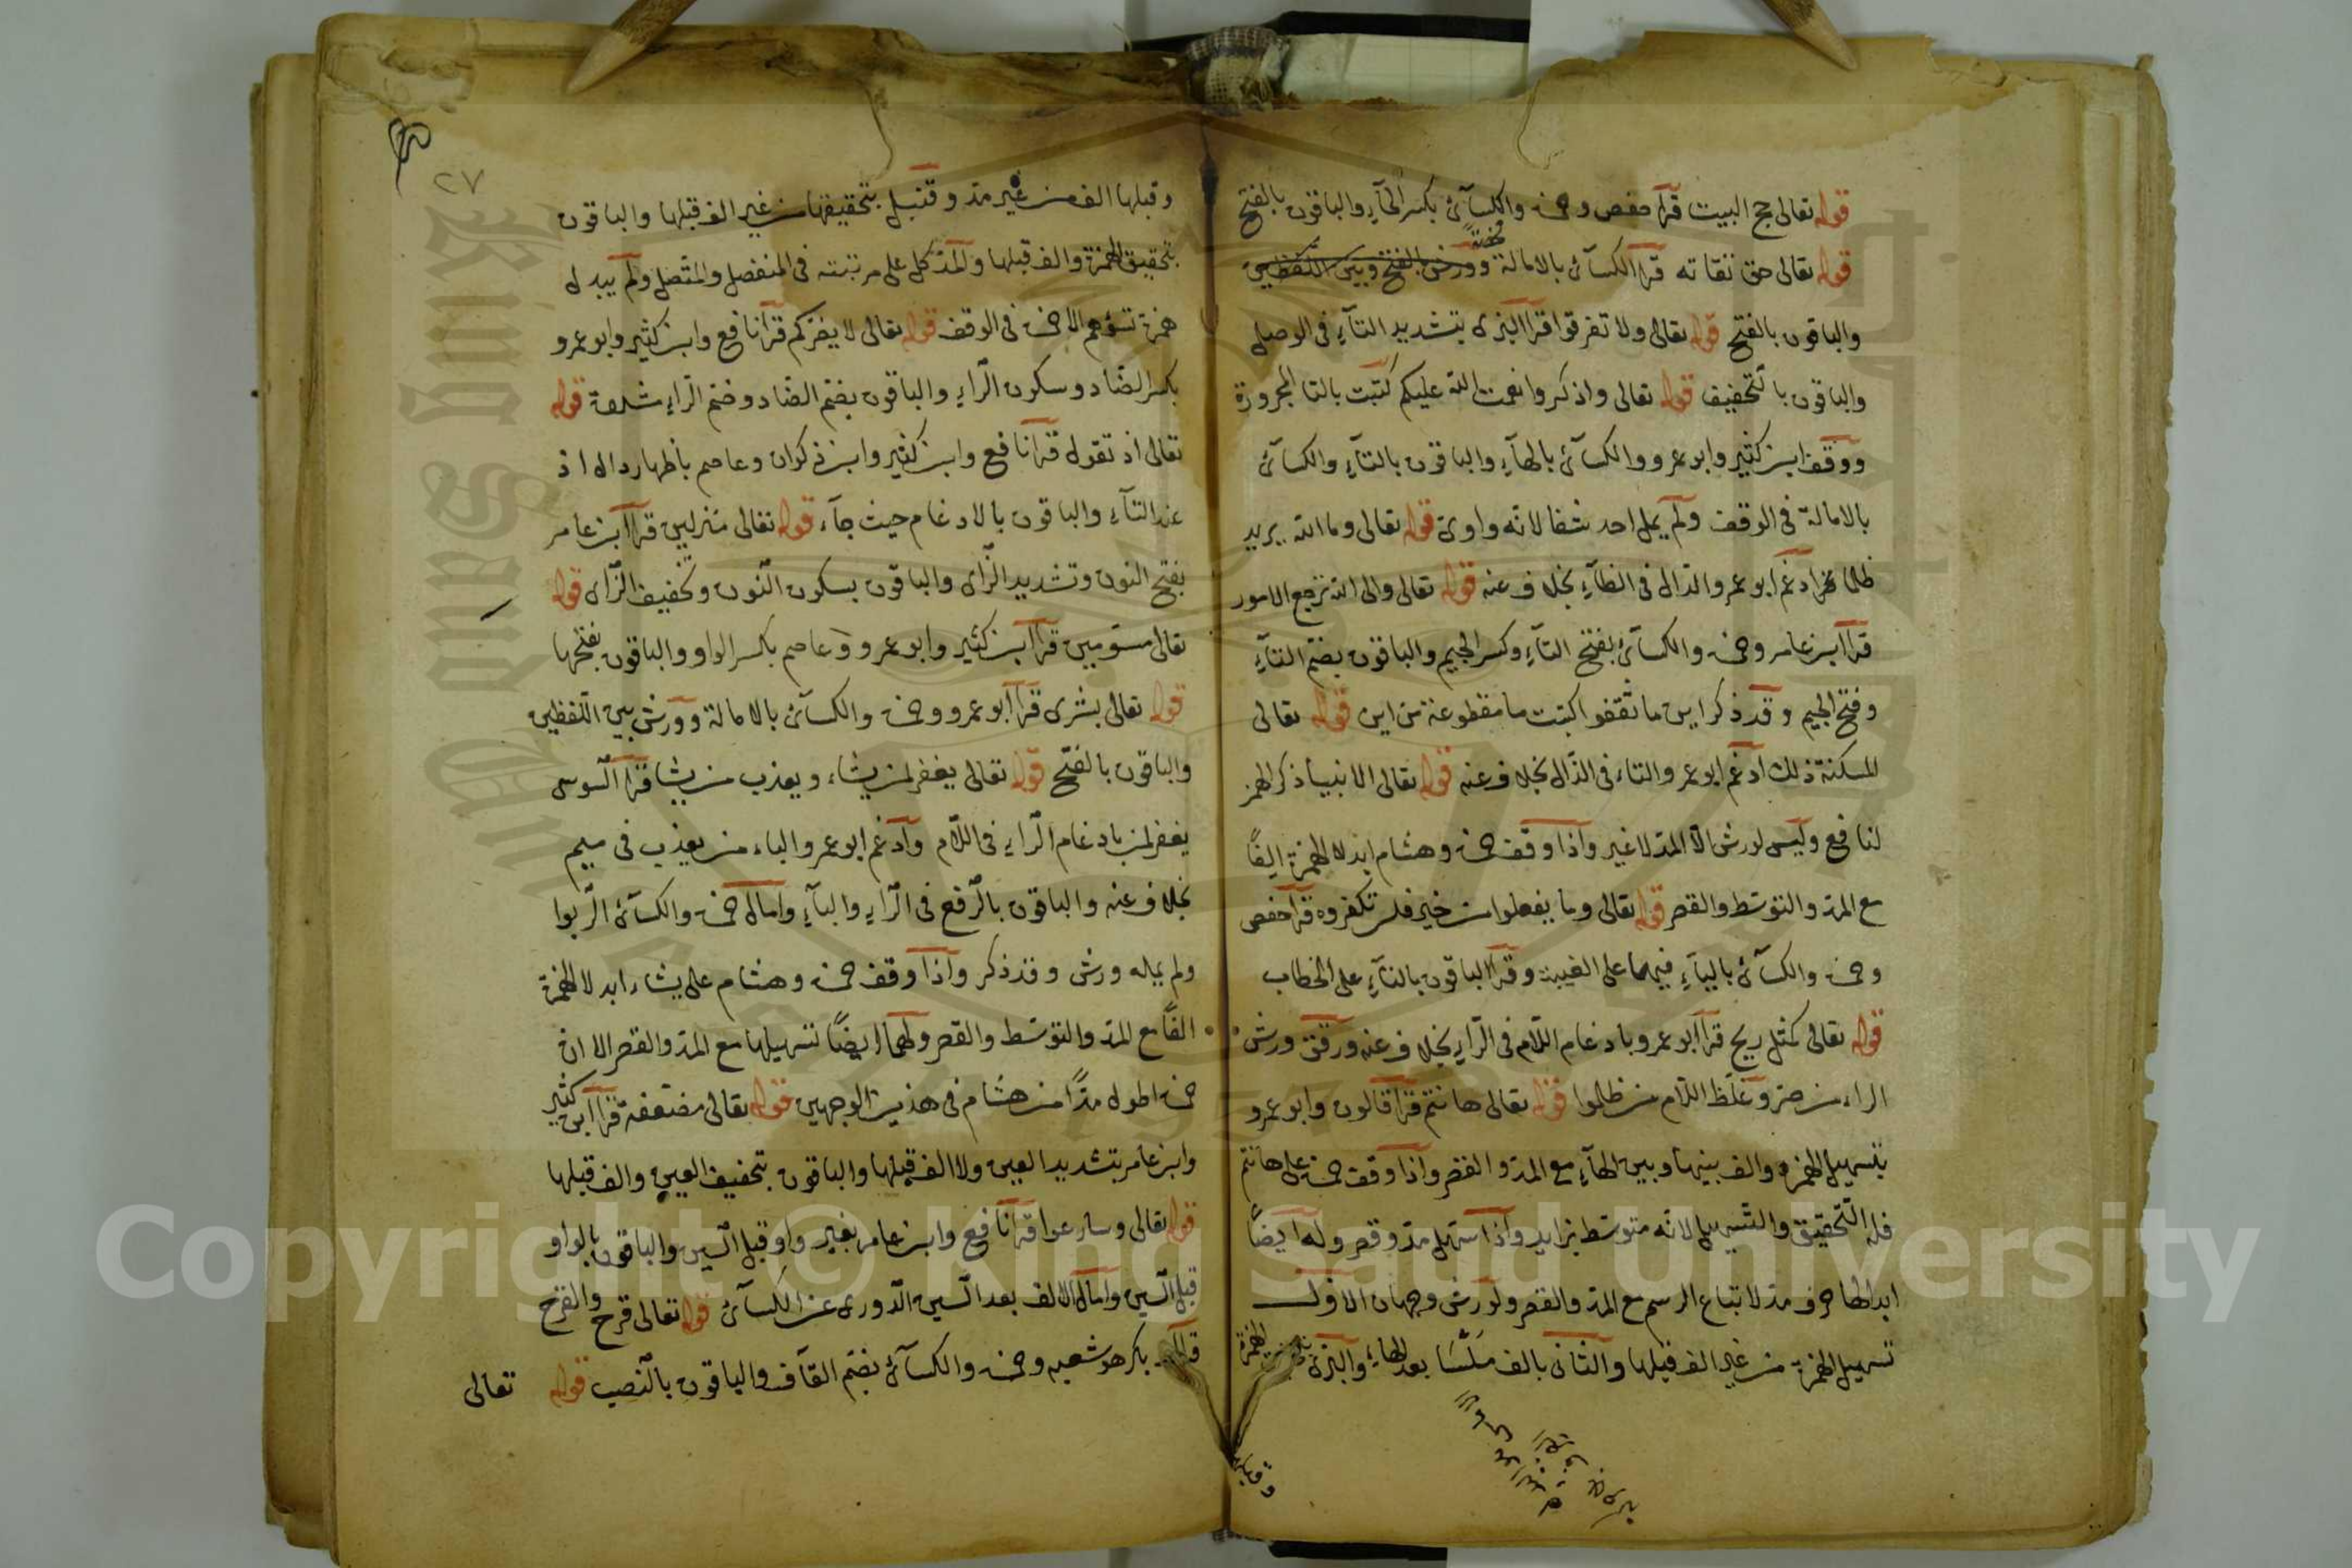 قوله تعالى حج البيت قرأ حفص وحمزة والكسآئ بكسر الحآء والباقون بالفتح
قوله تعالى حق تقاته قرأ الكسآئ بالامالة وورش بالفتح وبين اللفظين
والباقون بالفتح قوله تعالى ولا تفرقوا قرا البزى بتشديد التآء فى الوصل
والباقون بالتخفيف قوله تعالى واذكروا نعمت الله عليكم كتبت بالتا المجرورة
ووقف ابن كثير وابو عمرو والكسآئ بالهآء والباقون بالتآء والكسآئ
بالامالة فى الوقف ولم يمل احد شفا لانه واوى قوله تعالى وما الله يريد
ظلما ادغم ابو عمرو الدال فى الظآء بخلاف عنه قوله تعالى والى الله ترجع الامور
قرأ ابن عامر وحمزة والكسآئ بفتح التآء وكسر الجيم والباقون بضم التآء
وفتح الجيم وقد ذكر اين ما ثقفوا كتبت ما مقطوعة من اين قوله تعالى
المسكنة ذلك ادغم ابو عمرو التاء فى الذال بخلاف عنه قوله تعالى الانبيا ذكر الهمز
لنافع وليس لورش الا المد لا غير واذا وقف حمزة وهشام ابدلا الهمزة الفًا
مع المد والتوسط والقصر قوله تعالى وما يفعلوا من خير فلن تكفروه قرأ حفص
وحمزة والكسآئ باليآء فيهما على الغيبة وقرأ الباقون بالتآء على الخطاب
قوله تعالى كمثل ريح قرأ ابو عمرو بادغام اللام فى الرآء بخلاف عنه ورقق ورش
الراء من صر وغلظ اللام من ظلموا قوله تعالى ها نتم قرأ قالون وابو عمرو
بتسهيل الهمزة والف بينها وبين الهآء مع المد والقصر واذا وقف حمزة على هانتم
فله التحقيق والتسهيل لانه متوسط بزايد واذا سهل مد وقصر وله ايضًا
ابدالها حرف مد لاتباع الرسم مع المد والقصر ولورش وجهان الاول
تسهيل الهمزة من غير الف قبلها والثانى بالف بعد الهاء والبزى
وقبلها
٢٧
وقبلها الف من غير مد وقنبل بتحقيقها من غير الف قبلها والباقون
بتحقيق الهمزة والف قبلها والمد كل على مرتبته فى المنفصل والمتصل ولم يبدل
همزة تسؤهم الا حمزة فى الوقف قوله تعالى لا يضركم قرأ نافع وابن كثير وابو عمرو
بكسر الضاد وسكون الرآء والباقون بضم الضاد وضم الراء مشددة قوله
تعالى اذ تقول قرأ نافع وابن كثير وابن ذكوان وعاصم باظهار دال اذ
عند التآء والباقون بالادغام حيث جآء قوله تعالى منزلين قرأ ابن عامر
بفتح النون وتشديد الزاى والباقون بسكون النون وتخفيف الزاى قوله
تعالى مسومين قرأ ابن كثير وابو عمرو وعاصم بكسر الواو والباقون بفتحها
قوله تعالى بشرى قرأ ابو عمرو وحمزة والكسآئ بالامالة وورش بين اللفظين
والباقون بالفتح قوله تعالى يغفر لمن يشاء ويعذب من يشا قرأ السوسى
يغفر لمن بادغام الرآء فى اللام وادغم ابو عمرو الباء من يعذب فى ميم
بخلاف عنه والباقون بالرفع فى الرآء والبآء وامال حمزة والكسآئ الربوا
ولم يمله ورش وقد ذكر واذا وقف حمزة وهشام على يشاء ابدلا الهمزة
الفًا مع المد والتوسط والقصر ولهما ايضًا تسهيلها مع المد والقصر الا ان
حمزة اطول مدًا من هشام فى هذين الوجهين قوله تعالى مضعفة قرأ ابن كثير
وابن عامر بتشديد العين ولا الف قبلها والباقون بتخفيف العين والف قبلها
قوله تعالى وسارعوا قرأ نافع وابن عامر بغير واو قبل السين والباقون بالواو
قبل السين وامال الالف بعد السين الدورى عن الكسآئ قوله تعالى قرح والقرح
بكر هو شعبه وحمزة والكسآئ بضم القآف والباقون بالنصب قوله تعالى
Copyright © King Saud University